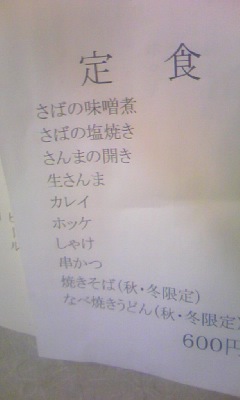 定食
さばの味噌煮
さばの塩焼き
さんまの開き
生さんま
カレイ
ホッケ
しゃけ
串かつ
焼きそば(秋・冬限定)
なべ焼きうどん(秋・冬限定)
600円
ビール